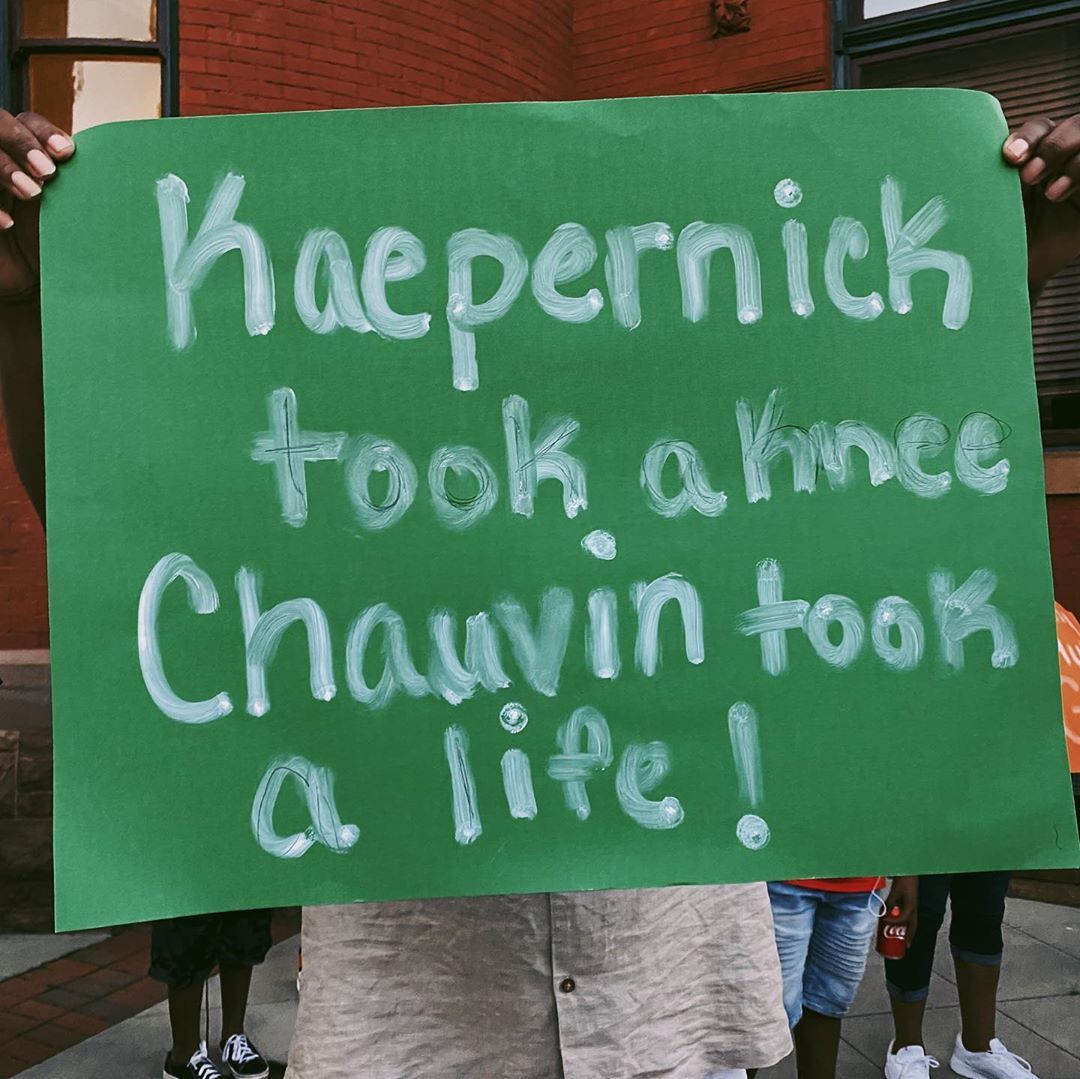 Kaepernick
took a knee
Chauvin took
a life!